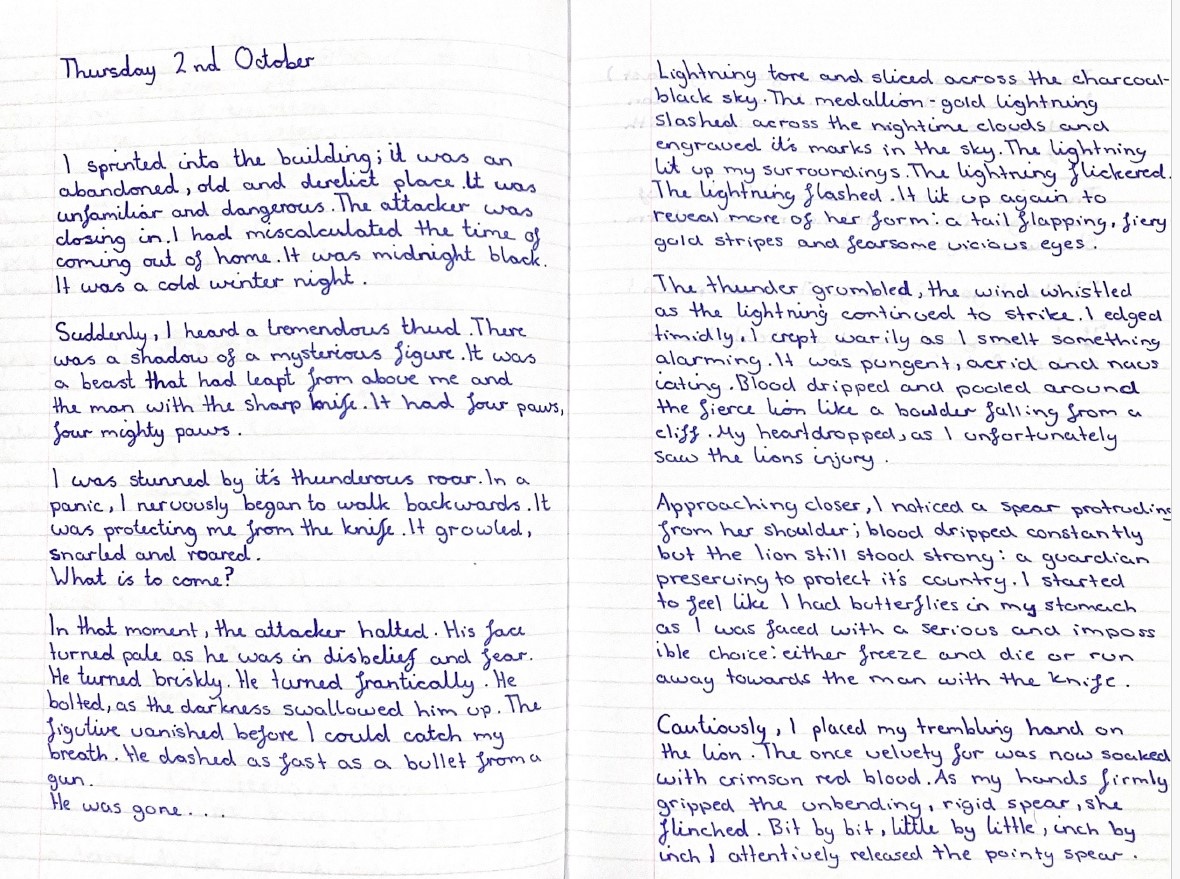 Thursday 2nd October
I sprinted into the building; it was an
abandoned, old and derelict place. It was
unfamiliar and dangerous. The attacker was
closing in. I had miscalculated the time of
coming out of home. It was midnight black.
It was a cold winter night.
Suddenly, I heard a tremendous thud. There
was a shadow of a mysterious figure. It was
a beast that had leapt from above me and
the man with the sharp knife. It had four paws,
four mighty paws.
I was stunned by it's thunderous roar. In a
panic, I nervously began to walk backwards. It
was protecting me from the knife. It growled,
snarled and roared.
What is to come?
In that moment, the attacker halted. His face
turned pale as he was in disbelief and fear.
He turned briskly. He turned frantically. He
bolted, as the darkness swallowed him up. The
figutive vanished before I could catch my
breath. He dashed as fast as a bullet from a
gun.
He was gone....
Lightning tore and sliced across the charcoal-
black sky. The medallion-gold lightning
slashed across the nightime clouds and
engraved it's marks in the sky. The lightning
lit up my surroundings. The lightning flickered.
The lightning flashed. It lit up again to
reveal more of her form: a tail flapping, fiery
gold stripes and fearsome vicious eyes.
The thunder grumbled, the wind whistled
as the lightning continued to strike. I edged
timidly. I crept warily as I smelt something
alarming. It was pungent, acrid and naus
iating. Blood dripped and pooled around
the fierce lion like a boulder falling from a
cliff. My heart dropped, as I unfortunately
saw the lions injury.
Approaching closer, I noticed a spear protruding
from her shoulder; blood dripped constantly
but the lion still stood strong: a guardian
preserving to protect it's country. I started
to feel like I had butterflies in my stomach
as I was faced with a serious and imposs
ible choice: either freeze and die or run
away towards the man with the knife.
Cautiously, I placed my trembling hand on
the lion. The once velvety fur was now soaked
with crimson red blood. As my hands firmly
gripped the unbending, rigid spear, she
flinched. Bit by bit, little by little, inch by
inch I attentively released the pointy spear.